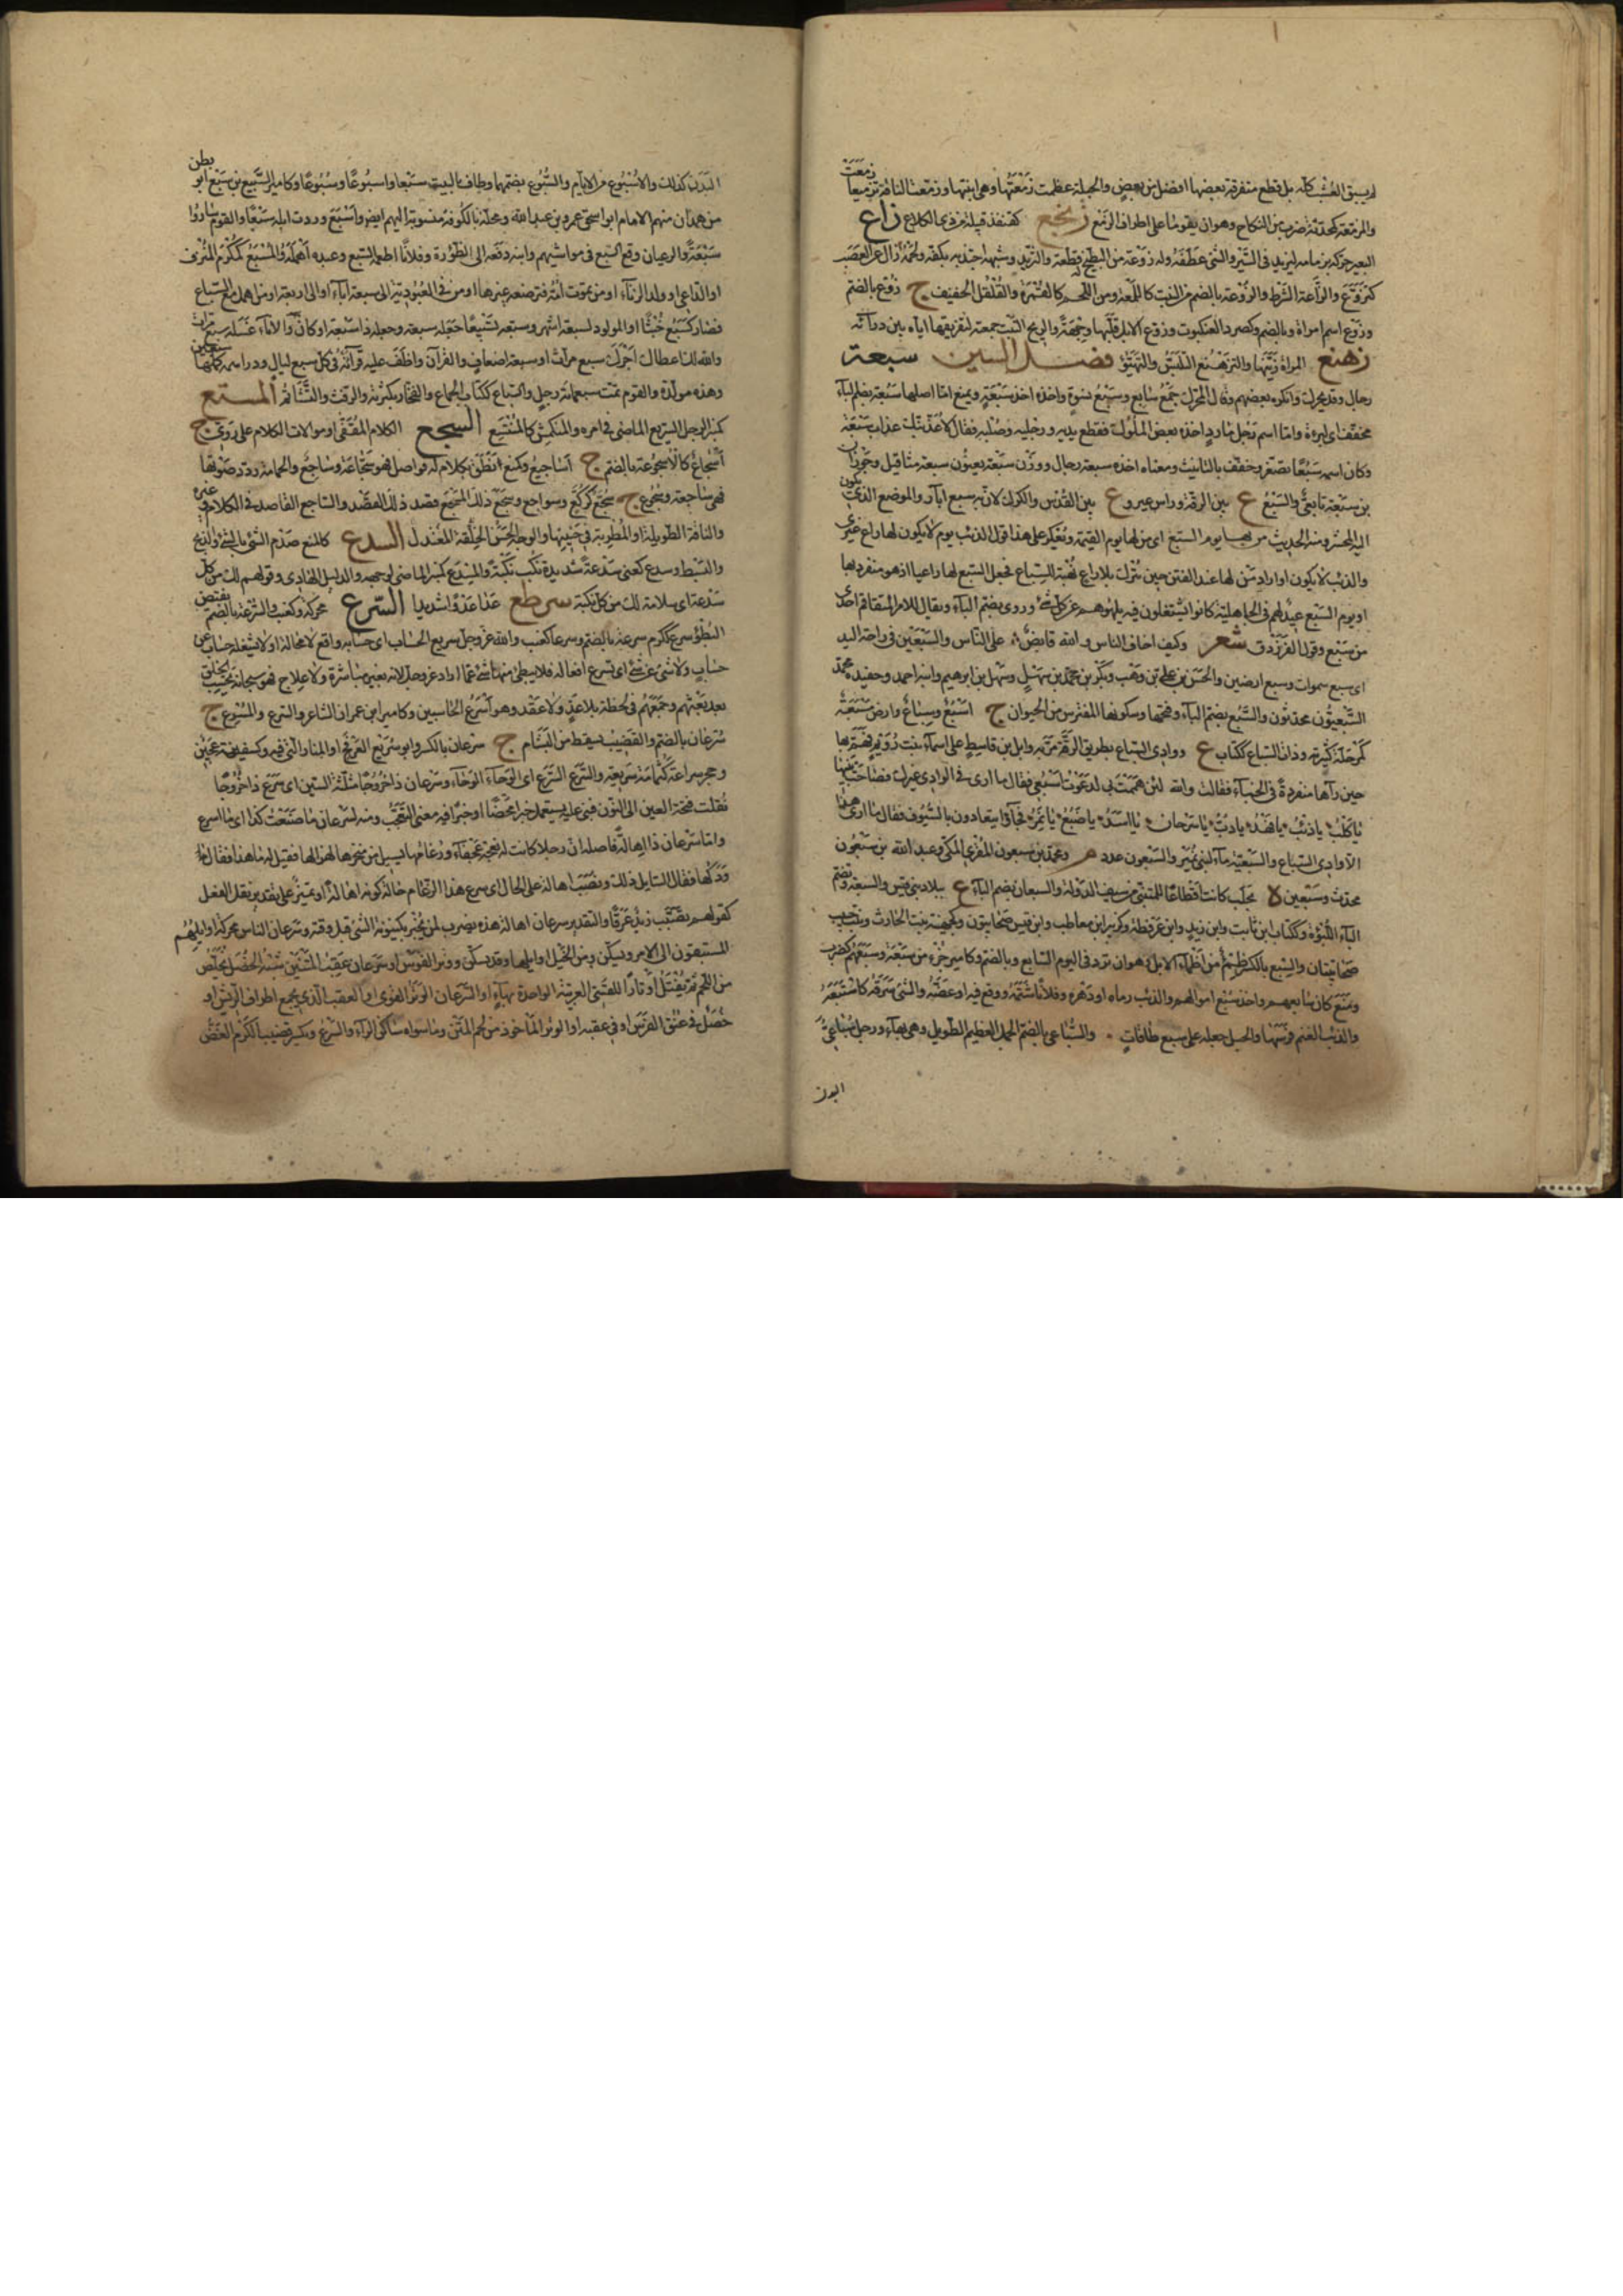 لم يسبق العشب كله بل قطع متفرقة بعضها افضل من بعض والحبلة عظمت زمعتها وهي ابنتها وزمعت الناقة تزميعا زمعت
والمزمعة كمحدثة ضرب من النكاح وهو ان يقوما على اطراف الزمع زنجع كقنفذ قبيلة من ذي الكلاع زاع
البعير حركه بزمامه ليزيد في السير والشئ عطفه وله زوعة من البطيخ قطعة والثريد وشبهه اجتذبه بكفه ولحمه زال عن العصب
كتزوع والزاعة الشرط والزوعة بالضم من النبت كاللمعة ومن اللحم كالقمزة والقلقل الخفيف ج زوع بالضم
وزوع اسم امراة وبالضم وكصرد العنكبوت وزوع الابل قلبها وجهة والريح النبت جمعته لتفريقها اياه بين ذراته
زهنع المراة زينها والتزهنع التلبس والتهيؤ فصل السين سبعة
رجال وقد يحرك وانكره بعضهم وقال المحرك جمع سابع وسبع نسوة واخذه اخذ سبعة ويمنع اما اصلها سبعة بضم الباء
مخفف اي لبوءة واما اسم رجل مارد اخذه بعض الملوك فقطع يديه ورجليه وصلبه فقال لاعذبنك عذاب سبعة
وكان اسمه سبعا فصغر وخفف بالتانيث ومعناه اخذه سبعة رجال ووزن سبعة يعنون سبعة مثاقيل وجوذان
بن سبعة تابعي والسبع ع بين الرقة وراس عين و ع بين القدس والكرك لان به سبع ابار والموضع الذي يكون
اليه المحشر ومنه الحديث من لها يوم السبع اي من لها يوم القيمة ويعكر على هذا قول الذئب يوم لا يكون لها راع غيري
والذئب لا يكون او اراد من لها عند الفتن حين تترك بلا راع نهبة للسباع فجعل السبع لها راعيا اذ هو منفرد بها
او يوم السبع عيد لهم في الجاهلية كانوا يشتغلون فيه بلهوهم عن كل شئ وروي بضم الباء ويقال للامر المتفاقم احدى
من سبع وقول الفرزدق شعر وكيف اخاف الناس والله قابض على الناس والسبعين في راحة اليد
اي سبع سموات وسبع ارضين والحسن بن علي بن وهب وبكر بن محمد بن سهل وسهل بن ابرهيم وابنه احمد وحفيده محمد
السبعيون محدثون والسبع بضم الباء وفتحها وسكونها المفترس من الحيوان ج اسبع وسباع وارض مسبعة
كمرحلة كثيرته وذات السباع ككتاب ع ووادي السباع بطريق الرقة مر به وايل بن قاسط على اسماء بنت رويم فهم بها
حين رآها منفردة في الخباء فقالت والله لئن هممت بي لدعوت اسبعي فقال ما ارى في الوادي غيرك فصاحت ببنيها
يا كلب يا ذئب يا فهد يا دب يا سرحان يا اسد يا ضبع يا نمر فجاؤا يتعادون بالسيوف فقال ما ارى هذا
الا وادي السباع والسبعية ماء لبني نمير والسبعون عدد م ومحمد بن سبعون المقري المكي وعبد الله بن سبعون
محدث وسبعين لا بحلب كانت اقطاعا للمتنبي من سيف الدولة والسبعان بضم الباء ع ببلاد بني قيس والسبعة وتضم
الباء اللبوة وككتاب ابن ثابت وابن زيد وابن عرفطة وكزبير ابن حاطب وابن قيس صحابيون وكجهينة بنت الحارث وبنت حبيب
صحابيتان والسبع بالكسر ظمء من اظماء الابل وهو ان ترد في اليوم السابع وبالضم وكامير جزء من سبعة وسبعهم كضرب
ومنع كان سابعهم واخذ سبع اموالهم والذئب رماه او ذعره وفلانا شتمه ووقع فيه او عضه والشئ سرقه كاستبعه
والذئب الغنم فرسها والحبل جعله على سبع طاقات والسباعي بالضم الجمل العظيم الطويل وهي بهاء ورجل سباعي
البدن
البدن كذلك والاسبوع من الايام والسبوع بضمهما وطاف بالبيت سبعا واسبوعا وسبوعا وكامير السبيع بن سبع ابو بطن
من همدان منهم الامام ابو اسحق عمرو بن عبد الله ومحلة بالكوفة منسوبة اليهم ايض واسبع وردت ابله سبعا والقوم صاروا
سبعة والرعيان وقع السبع في مواشيهم وابنه دفعه الى الظؤرة وفلانا اطعمه السبع وعبده اهمله والمسبع كمكرم المترف
او الدعي او ولد الزناء او من تموت امه فترضعه غيرها او من في العبودية الى سبعة اباء او الى اربعة او من اهمل مع السباع
فصار كسبع خبثا او المولود لسبعة اشهر وسبعه تسبيعا جعله سبعة وجعله ذا سبعة اركان والاناء غسله سبع مرات
والله لك اعطاك اجرك سبع مرات او سبعة اضعاف والقرآن وظف عليه قرآنه في كل سبع ليال ودراهمه كملها سبعين
وهذه مولدة والقوم تمت سبعمائة رجل والسباع ككتاب الجماع والفخار بكثرته والرفث والتشاتم المستع
كمنبر الرجل السريع الماضي في امره والمنكمش كالمنستع السجع الكلام المقفى او موالات الكلام على روي ج
اسجاع كالاسجوعة بالضم ج اساجيع وكمنع نطق بكلام له فواصل فهو سجاعة وساجع والحمامة رددت صوتها
فهي ساجعة وسجوع ج سجع كركع وسواجع وسجع ذلك المسجع قصد ذلك القصد والساجع القاصد في الكلام وغيره
والناقة الطويلة او المطربة في حنينها والوجه الحسن الخلقة المعتدل السدع كالمنع صدم الشئ بالشئ والذبح
والبسط وسدع كعني سدعة شديدة نكب نكبة والمسدع كمنبر الماضي لوجهه والدليل الهادي وقولهم لك من كل
سدعة اي سلامة لك من كل نكبة سرطع عدا عدوا شديدا السرع محركة وكعنب والسرعة بالضم نقيض
البطؤ سرع ككرم سرعة بالضم وسرعا كعنب والله عز وجل سريع الحساب اي حسابه واقع لا محالة او لا يشغله حساب عن
حساب ولا شئ عن شئ اي تسرع افعاله فلا يبطئ منها شئ عما اراد عز وجل لانه بغير مباشرة ولا علاج فهو سبحانه يحاسب الخلق
بعد بعثهم وجمعهم في لحظة بلا عد ولا عقد وهو اسرع الحاسبين وكامير ابن عمران الشاعر والسرع والمسروع ج
سرعان بالضم والقضيب يسقط من البشام ج سرعان بالكسر وابو سريع العرفج او النار التي فيه وكسفينة عين
وحجر سراعة كثمامة سريعة والسرع السرع اي الوحاء الوحاء وسرعان ذا خروجا مثلثة السين اي سرع ذا خروجا
نقلت فتحة العين الى النون فبني عليه يستعمل خبرا محضا او خبرا فيه معنى التعجب ومنه لسرعان ما صنعت كذا اي ما اسرع
واما سرعان ذا اهالة فاصله ان رجلا كانت له نعجة عجفاء ورغامها يسيل من منخرها لهزالها فقيل له ما هذا فقال
ودكها فقال السايل ذلك ونصب اهالة على الحال اي سرع هذا الرغام حال كونه اهالة او تمييز على تقدير نقل الفعل
كقولهم تصبب زيد عرقا والتقدير سرعان اهالة هذه يضرب لمن يخبر بكينونة الشئ قبل وقته وسرعان الناس محركة اوايلهم
المستبقون الى الامر ويسكن ومن الخيل اوايلها وقد يسكن ووتر القوس او سرعان عقب المتنين شبه الخصل تخلص
من اللحم ثم تفتل اوتارا للقسي العربية الواحدة بهاء او السرعان الوتر القوي او العقب الذي يجمع اطراف الريش او
خصل في عنق الفرس او في عقبه او الوتر الماخوذ من لحم المتن وما سواه ساكن الراء والسرع ويكسر قضيب الكرم الغض